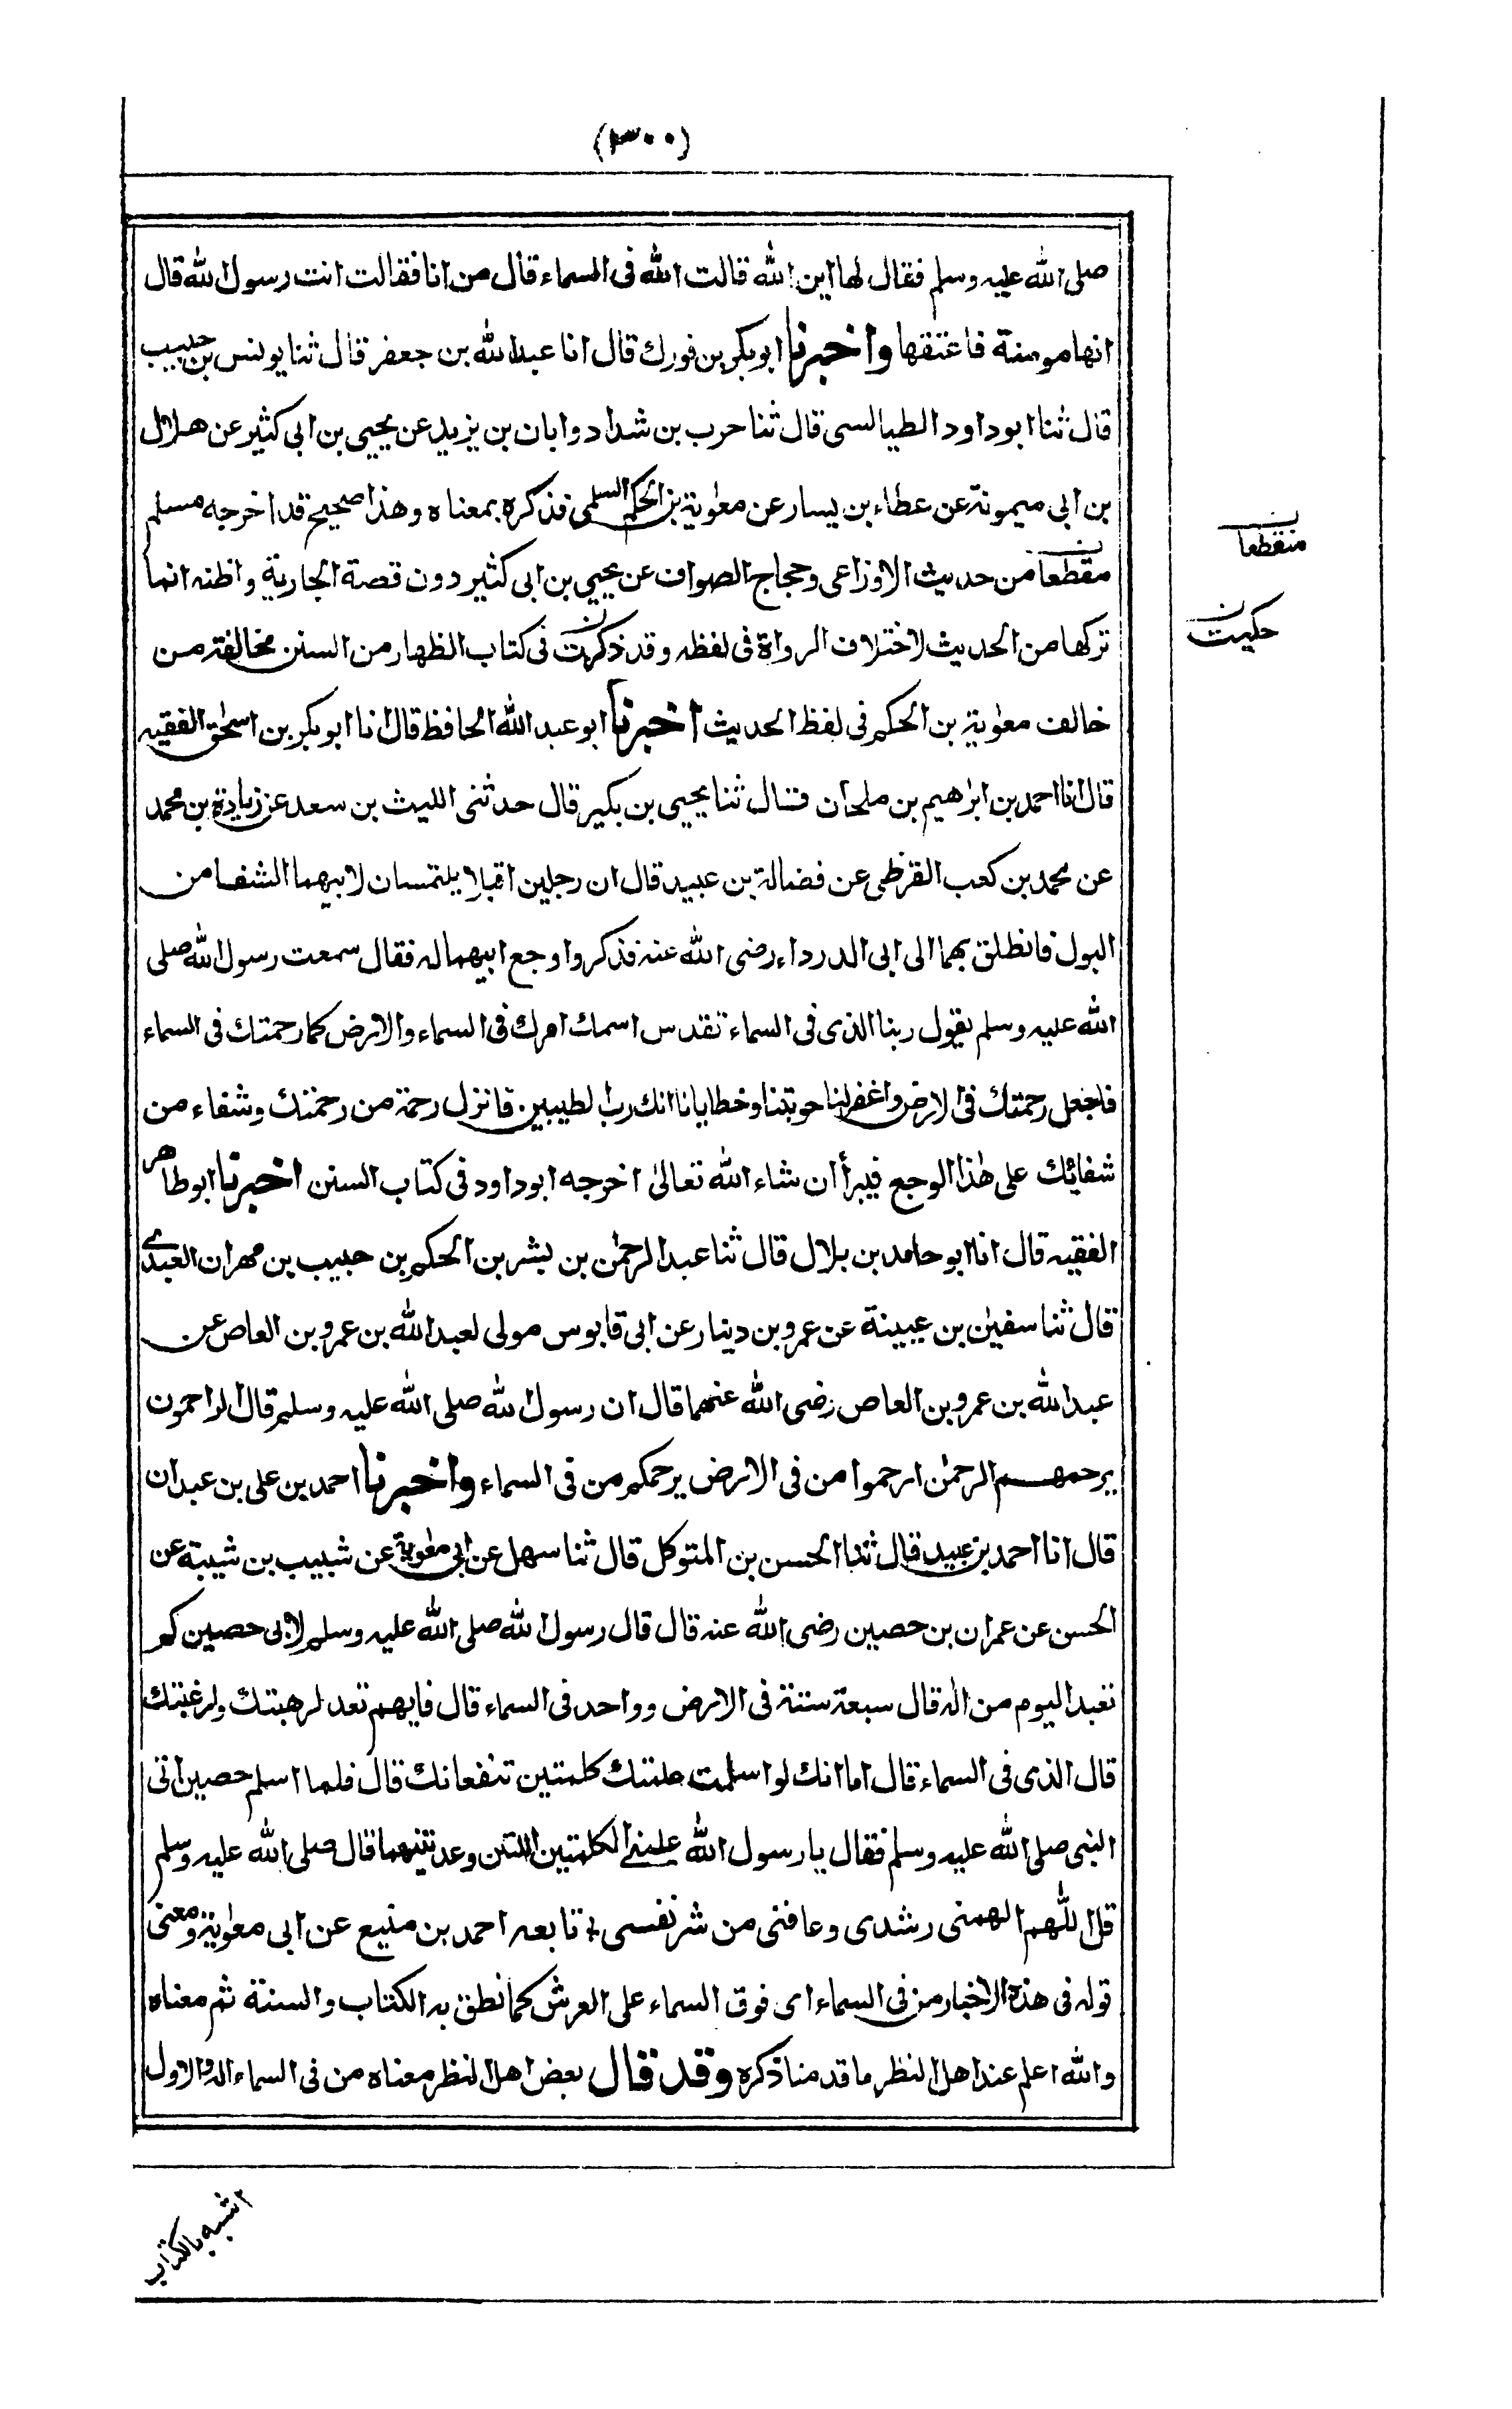 (٣٠٠)
صلى الله عليه وسلم فقال لها اين الله قالت الله فى السماء قال من انا فقالت انت رسول الله قال
انها مومنة فاعتقها واخبرنا ابوبكر بن فورك قال انا عبدالله بن جعفر قال ثنا يونس بن حبيب
قال ثنا ابوداود الطيالسى قال ثنا حرب بن شداد وابان بن يزيد عن يحيى بن ابى كثير عن هلال
بن ابى ميمونة عن عطاء بن يسار عن معوية بن الحكم السلمى فذكره بمعناه وهذا صحيح قد اخرجه مسلم
مقطعا من حديث الاوزاعى وحجاج الصواف عن يحيى بن ابى كثير دون قصة الجارية واظنه انما
تركها من الحديث لاختلاف الرواة فى لفظه وقد ذكرت فى كتاب الظهار من السنن مخالفة من
خالف معوية بن الحكم فى لفظ الحديث اخبرنا ابوعبد الله الحافظ قال انا ابوبكر بن اسحق الفقيه
قال انا احمد بن ابراهيم بن ملحان قال ثنا يحيى بن بكير قال حدثنى الليث بن سعد عن زيادة بن محمد
عن محمد بن كعب القرظى عن فضالة بن عبيد قال ان رجلين اقبلا يلتمسان لابيهما الشفا من
البول فانطلق بهما الى ابى الدرداء رضى الله عنه فذكروا وجع ابيهما له فقال سمعت رسول الله صلى
الله عليه وسلم يقول ربنا الذى فى السماء تقدس اسمك امرك فى السماء والارض كما رحمتك فى السماء
فاجعل رحمتك فى الارض واغفرلنا حوبتنا وخطايانا انك رب الطيبين. فانزل رحمة من رحمتك وشفاء من
شفائك على هذا الوجع فيبرأ ان شاء الله تعالى اخرجه ابوداود فى كتاب السنن اخبرنا ابوطاهر
الفقيه قال انا ابوحامد بن بلال قال ثنا عبدالرحمن بن بشر بن الحكم بن حبيب بن مهران العبدے
قال ثنا سفين بن عيينة عن عمرو بن دينار عن ابى قابوس مولى لعبدالله بن عمرو بن العاص عن
عبدالله بن عمرو بن العاص رضى الله عنهما قال ان رسول الله صلى الله عليه وسلم قال الراحمون
يرحمهم الرحمن ارحموا من فى الارض يرحمكم من فى السماء واخبرنا احمد بن على بن عبدان
قال انا احمد بن عبيد قال ثنا الحسن بن المتوكل قال ثنا سهل عن ابى معوية عن شبيب بن شيبة عن
الحسن عن عمران بن حصين رضى الله عنه قال قال رسول الله صلى الله عليه وسلم لابى حصين كم
تعبد اليوم من اله قال سبعة ستة فى الارض وواحد فى السماء قال فايهم تعد لرهبتك ولرغبتك
قال الذى فى السماء قال اما انك لو اسلمت علمتك كلمتين تنفعانك قال فلما اسلم حصين اتى
النبى صلى الله عليه وسلم فقال يا رسول الله علمنے الكلمتين اللتين وعدتنيهما قال صلى الله عليه وسلم
قل اللهم الهمنى رشدى وعافنى من شر نفسى تابعه احمد بن منيع عن ابى معوية ومعنى
قوله فى هذه الاخبار من فى السماء اى فوق السماء على العرش كما نطق به الكتاب والسنة ثم معناه
والله اعلم عند اهل النظر ما قدمنا ذكره وقد قال بعض اهل النظر معناه من فى السماء اله والاول
منقطعا
حكيت
اشبه بالكتاب